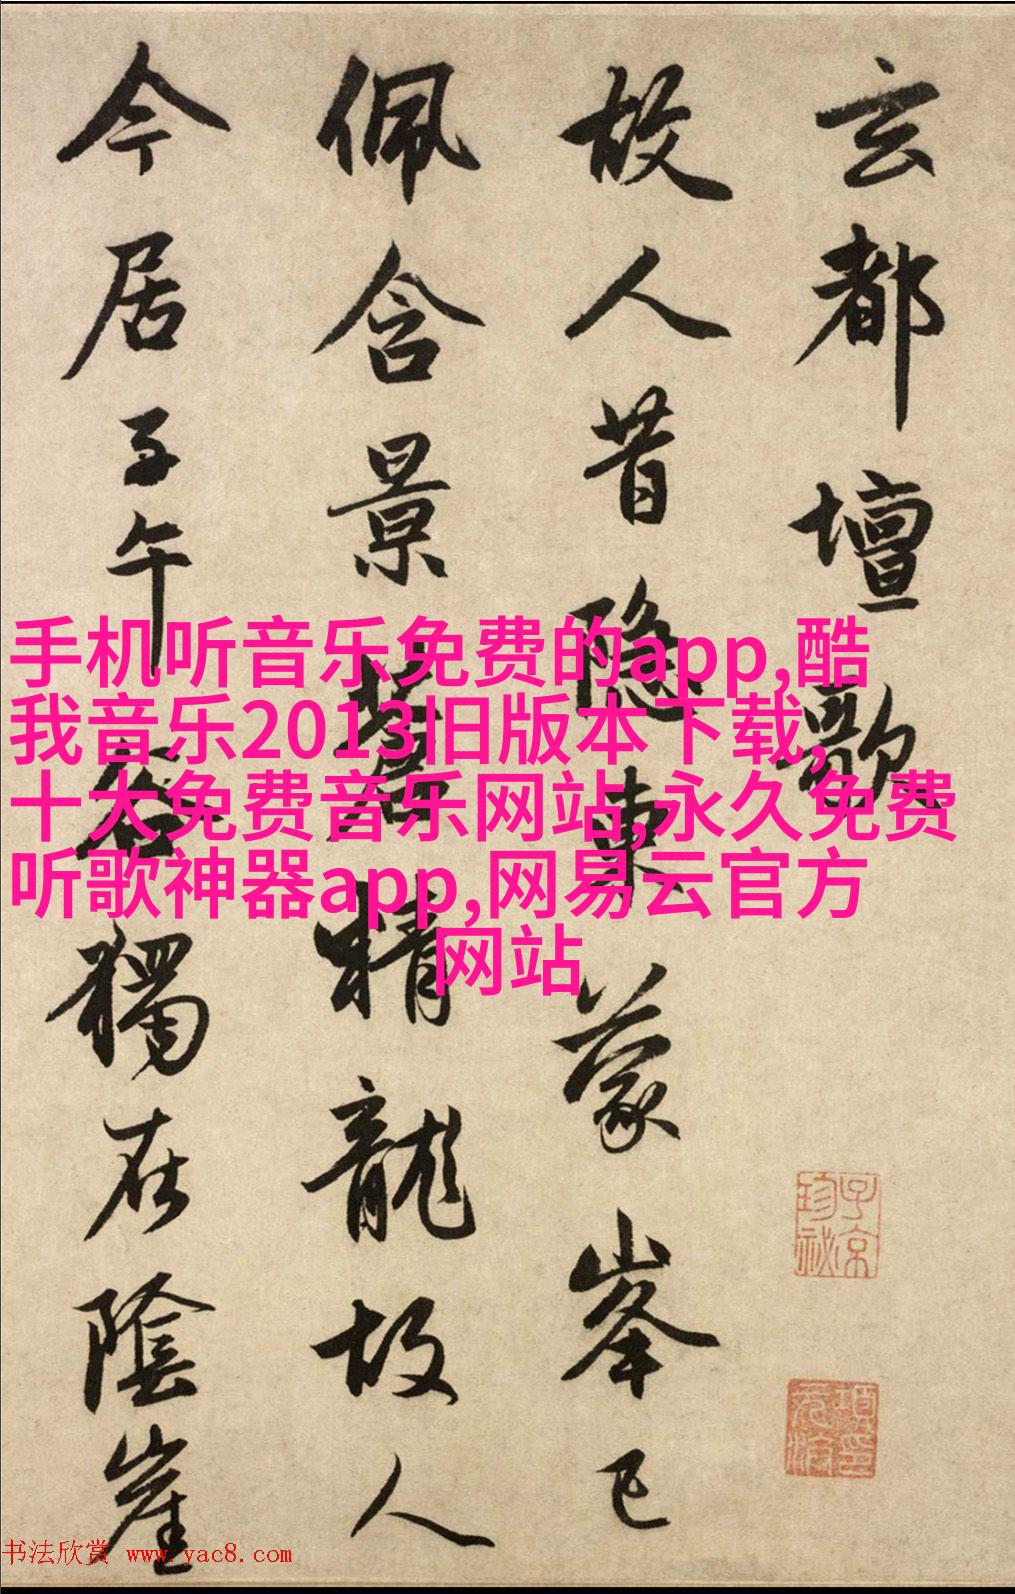 玄都壇歌
故人昔隐東蒙峯已
佩含景蒼精龍故人
今居子午谷獨在陰崖
手机听音乐免费的app,酷
我音乐2013旧版本下载,
十大免费音乐网站,永久免费
听歌神器app,网易云官方
网站
子京
珍祕
书法欣赏 www.yac8.com